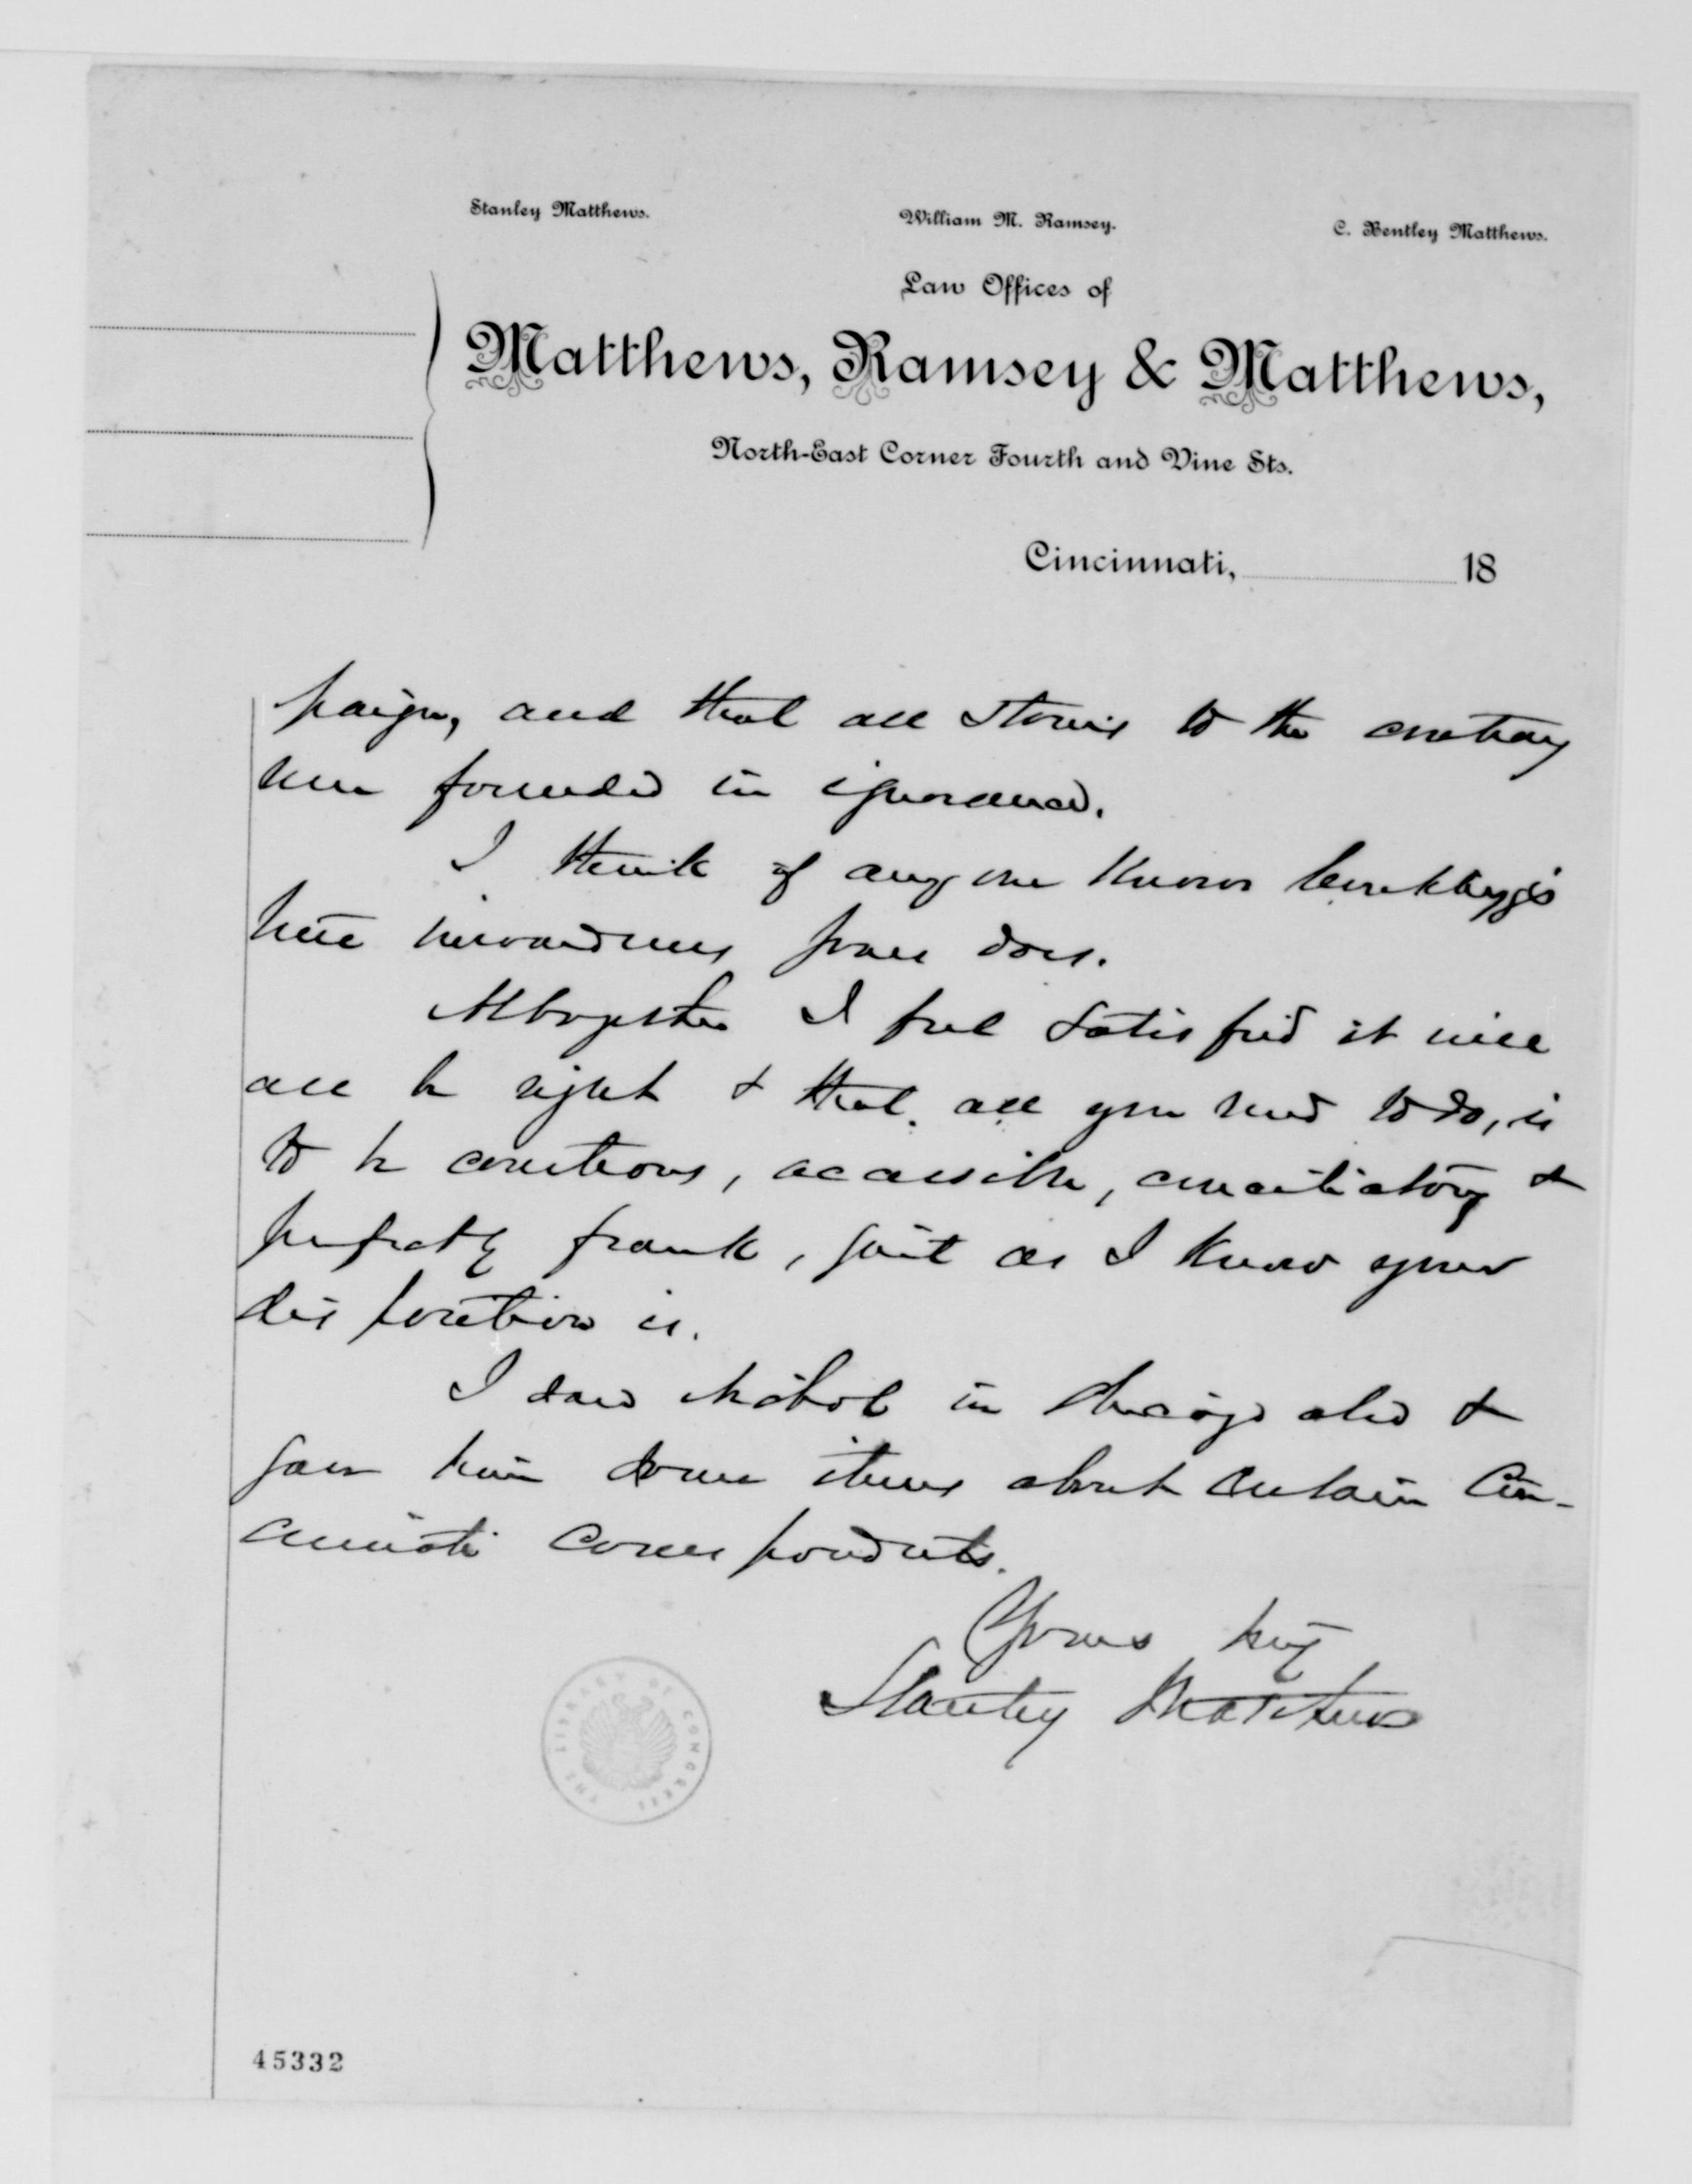 Stanley Matthews. William M. Ramsey. C. Bentley Matthews.
Law Offices of
Matthews, Ramsey & Matthews,
North-East Corner Fourth and Vine Sts.
Cincinnati, 18
paign, and that all stories to the contrary
were founded in ignorance.
I think if any one knows Conkling's
true inwardness does.
Altogether I feel satisfied it will
all be right & that all you need to do, is
to be courteous, accessible, conciliatory &
perfectly frank, just as I know your
disposition is.
I saw Nichol in Chicago also &
gave him some items about certain Cin-
cinnati correspondents.
Yours truly
Stanley Matthews
THE LIBRARY OF CONGRESS
45332